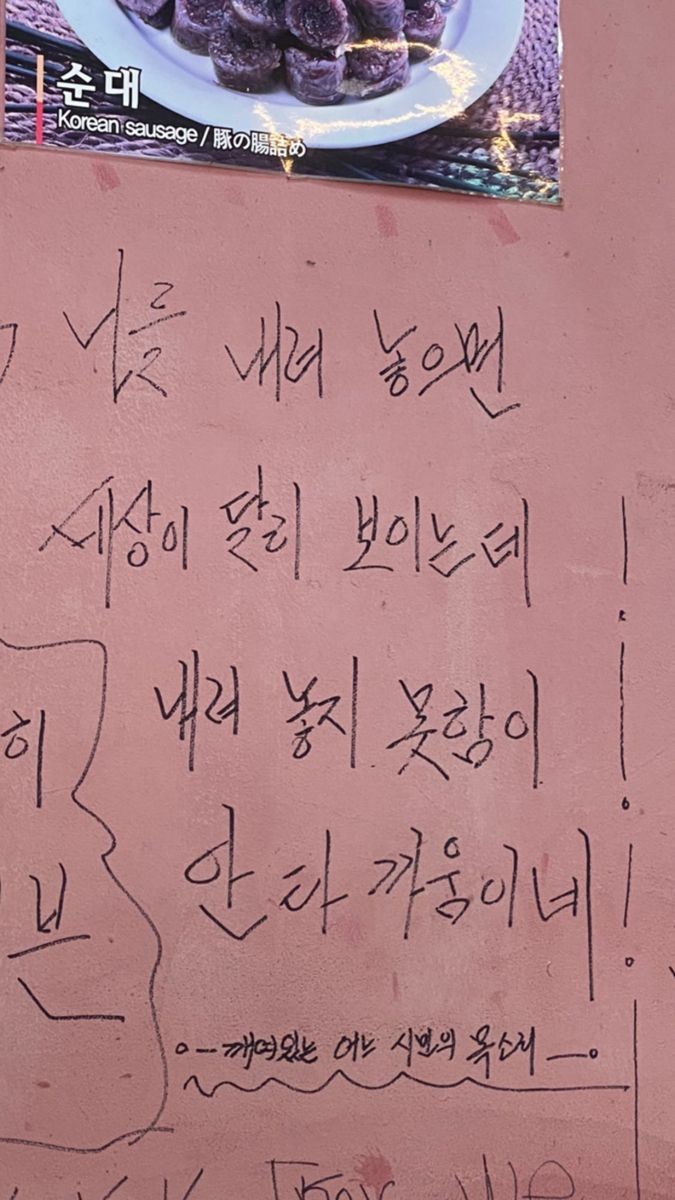 순대
Korean sausage / 豚の腸詰め
내려 놓으면
세상이 달리 보이는데 !
내려 놓지 못함이 !
안타까움이네 !
히
븐
깨여있는 어느 시민의 목소리